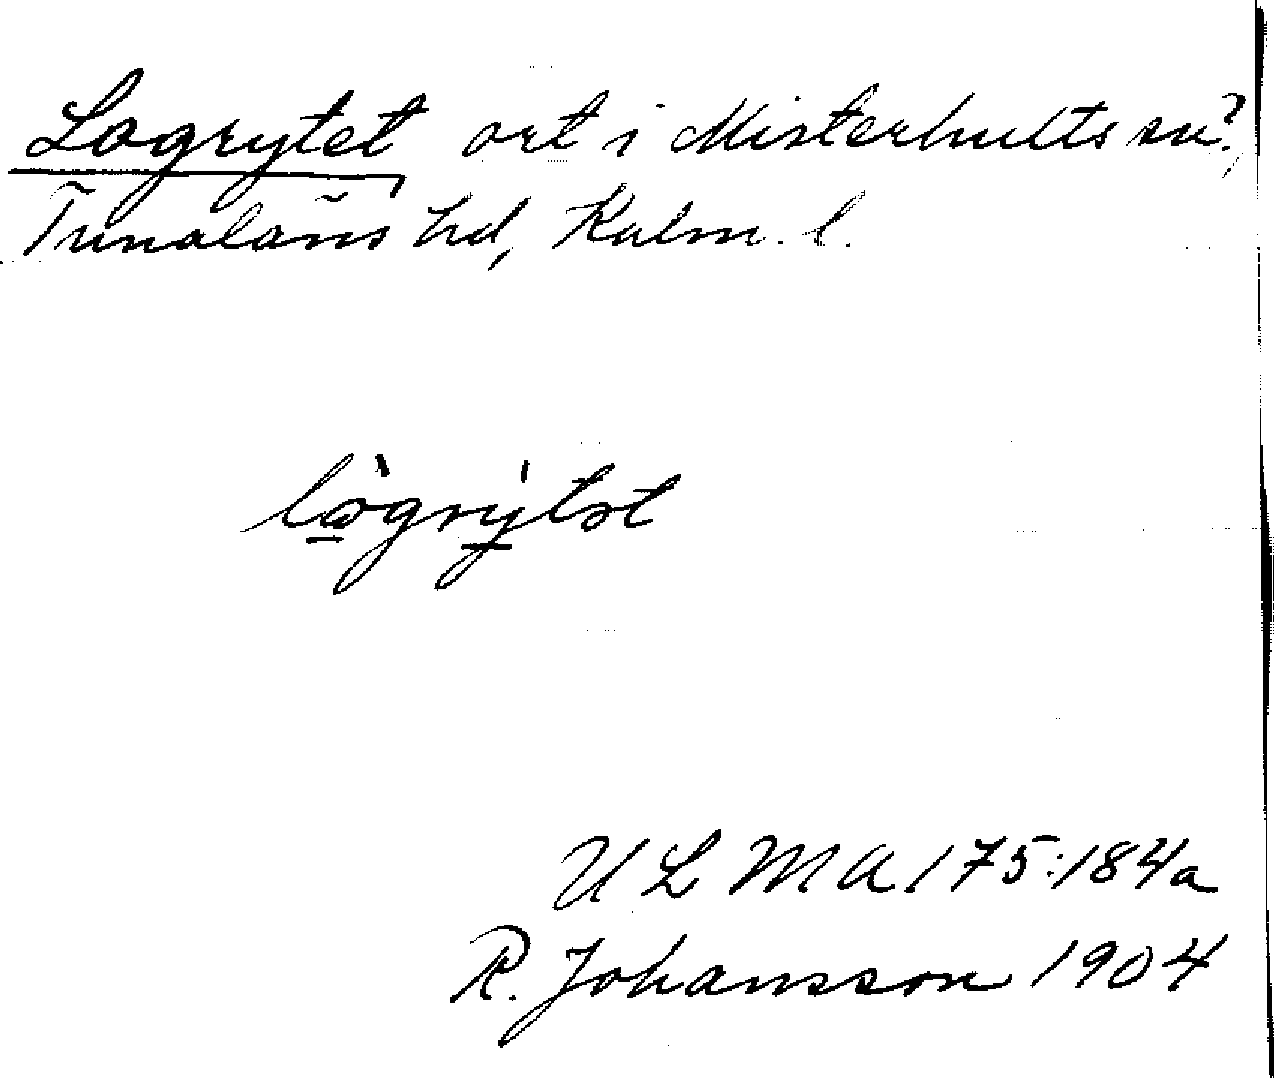 Logrytet ort i Misterhults sn?,
Tunaläns hd, Kalm. l.
ULMA 175:184a
R. Johansson 1904